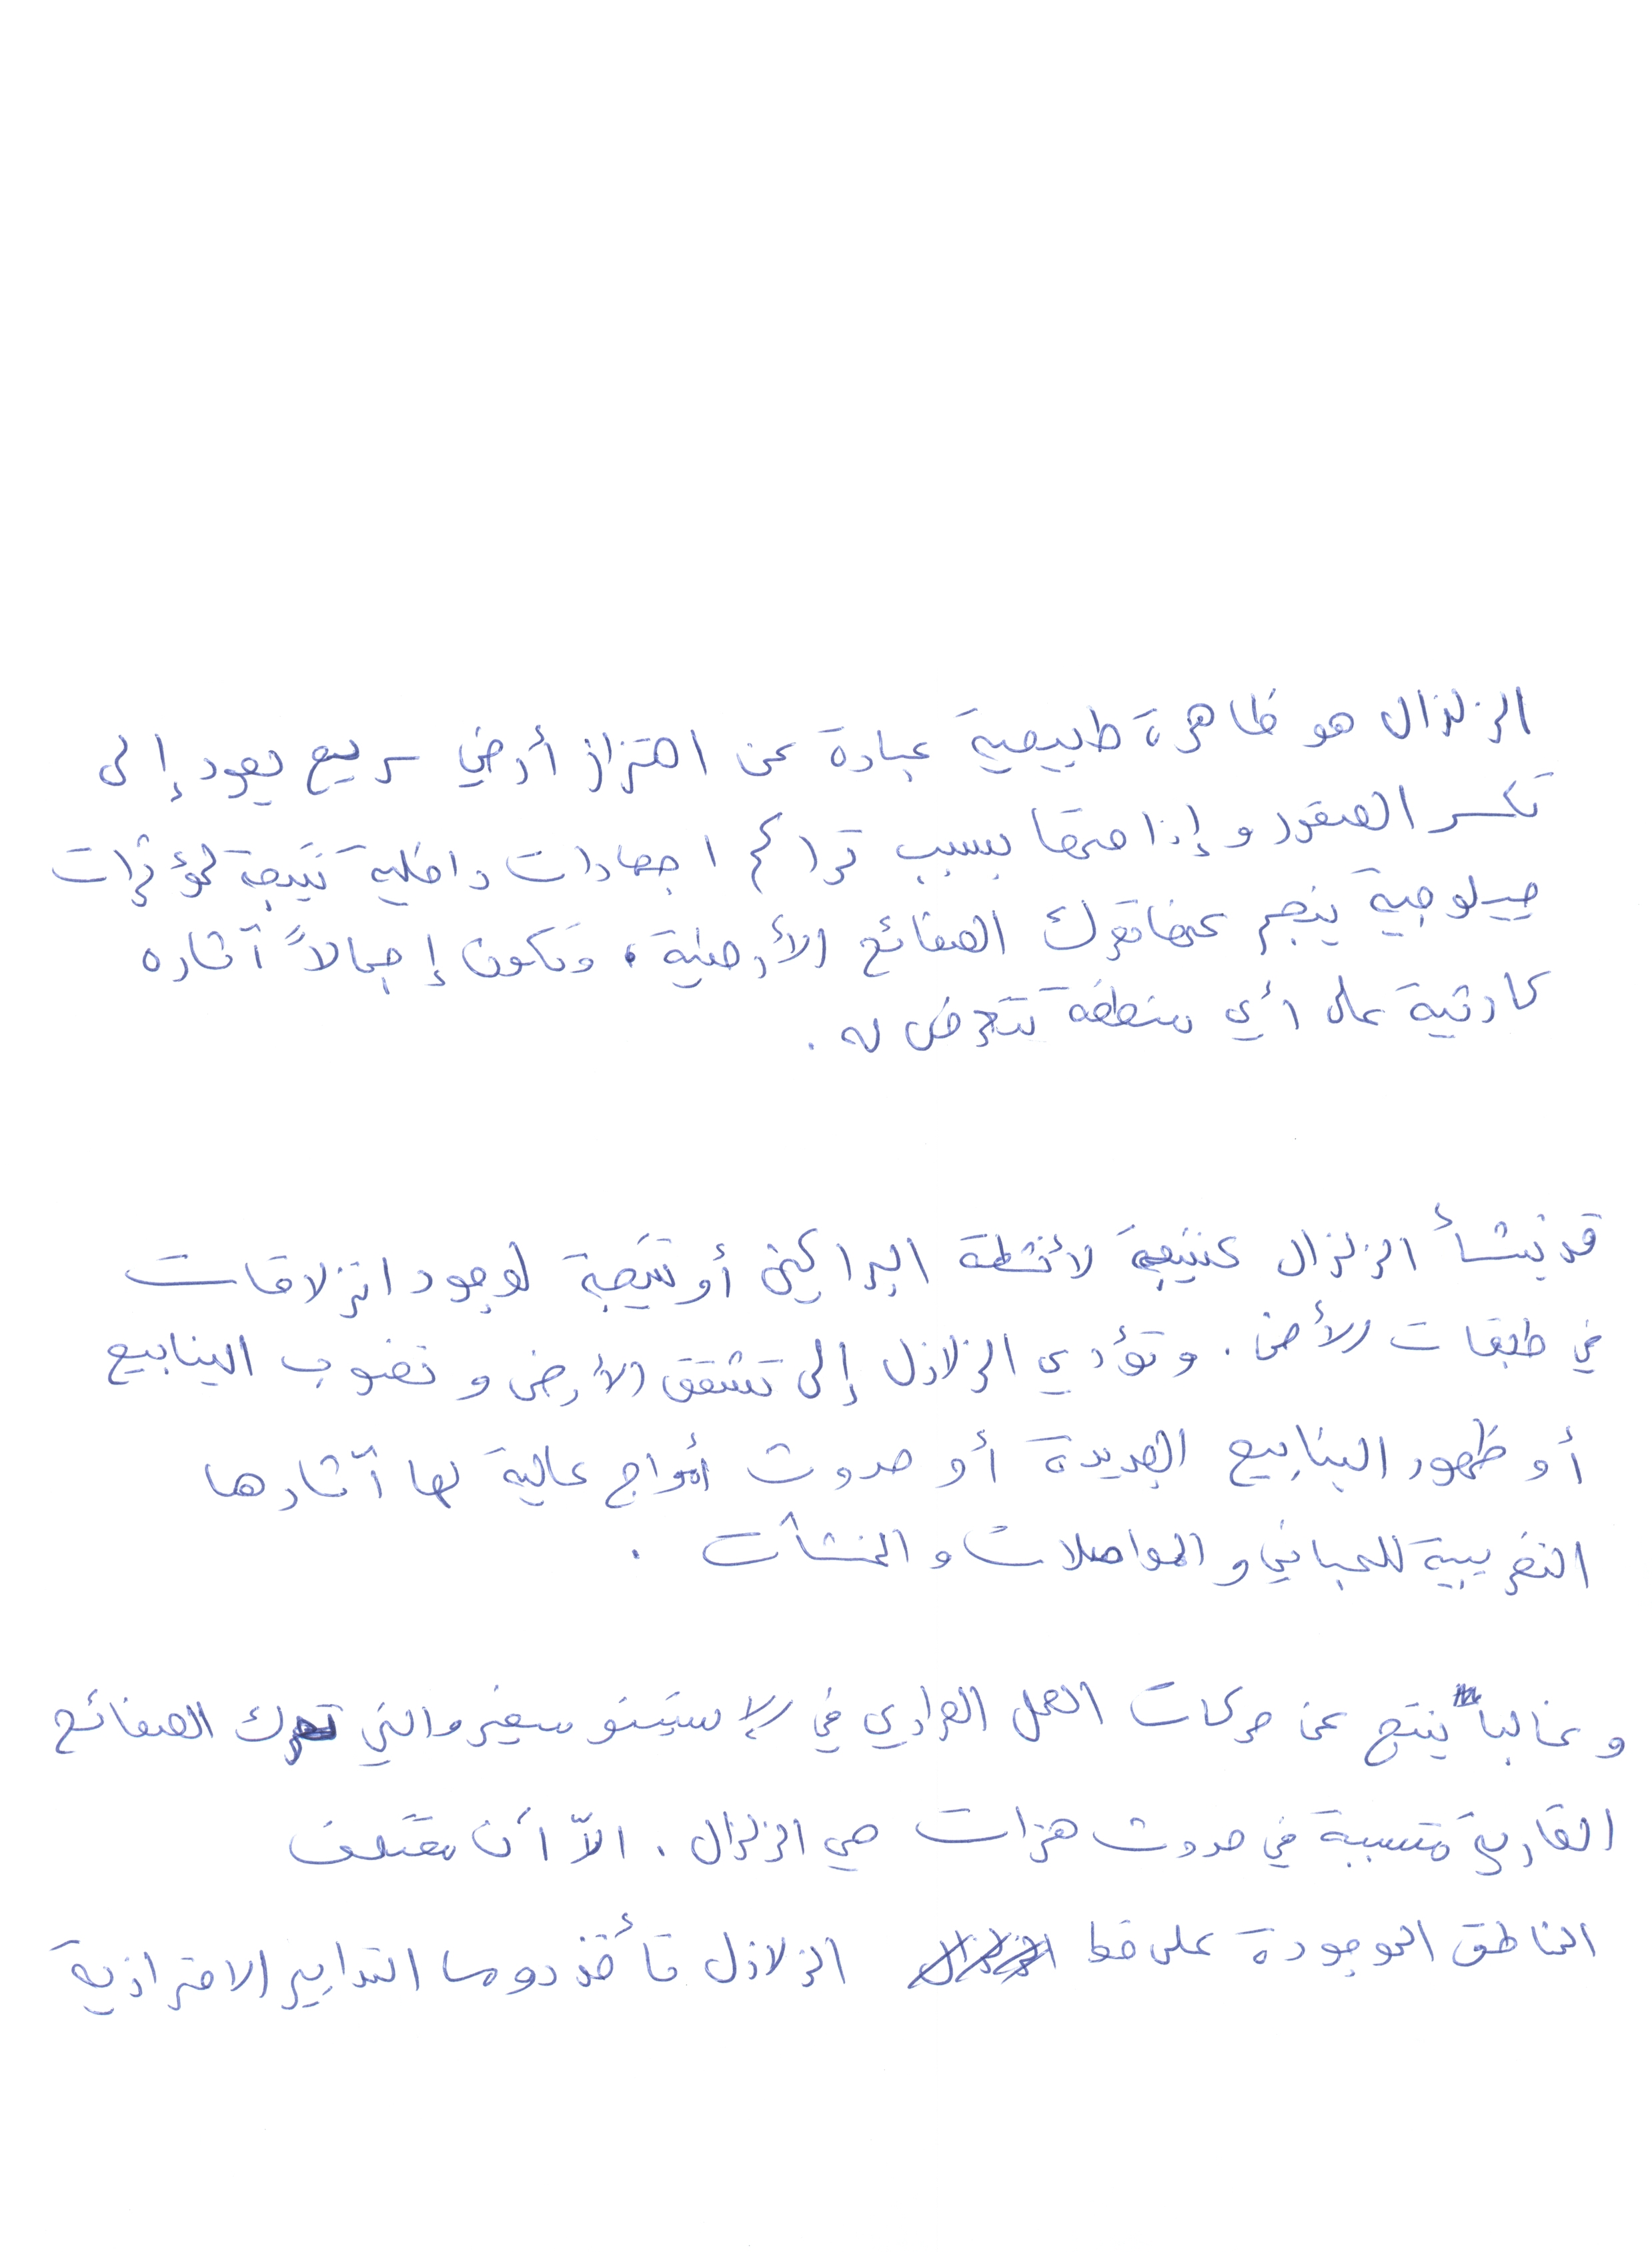 الزلزال هو ظاهرة طبيعية عبارة عن اهتزاز أرضي سريع يعود إلى
تكسر الصخور وإزاحتها بسبب تراكم اجهادات داخلية نتيجة لمؤثرات
جيولوجية ينجم عنها تحرك الصفائح الأرضية. وتكون إجمالاً آثاره
كارثية على أي منطقة تتعرض له.
قد ينشأ الزلزال كنتيجة لأنشطة البراكين أو نتيجة لوجود انزلاقات
في طبقات الأرض. وتؤدي الزلازل إلى تشقق الأرض ونضوب الينابيع
أو ظهور الينابيع الجديدة أو حدوث أمواج عالية لها آثارها
التخريبية للمباني والمواصلات والمنشآت.
وغالباً ينتج عن حركات الحمل الحراري في الاسينوسفير والتي تحرك الصفائح
القارية متسببة في حدوث هزات هي الزلزال. الاّ أن مختلف
المناطق الموجودة على خط الزلازل تأخذ دوما التدابير الاحترازية